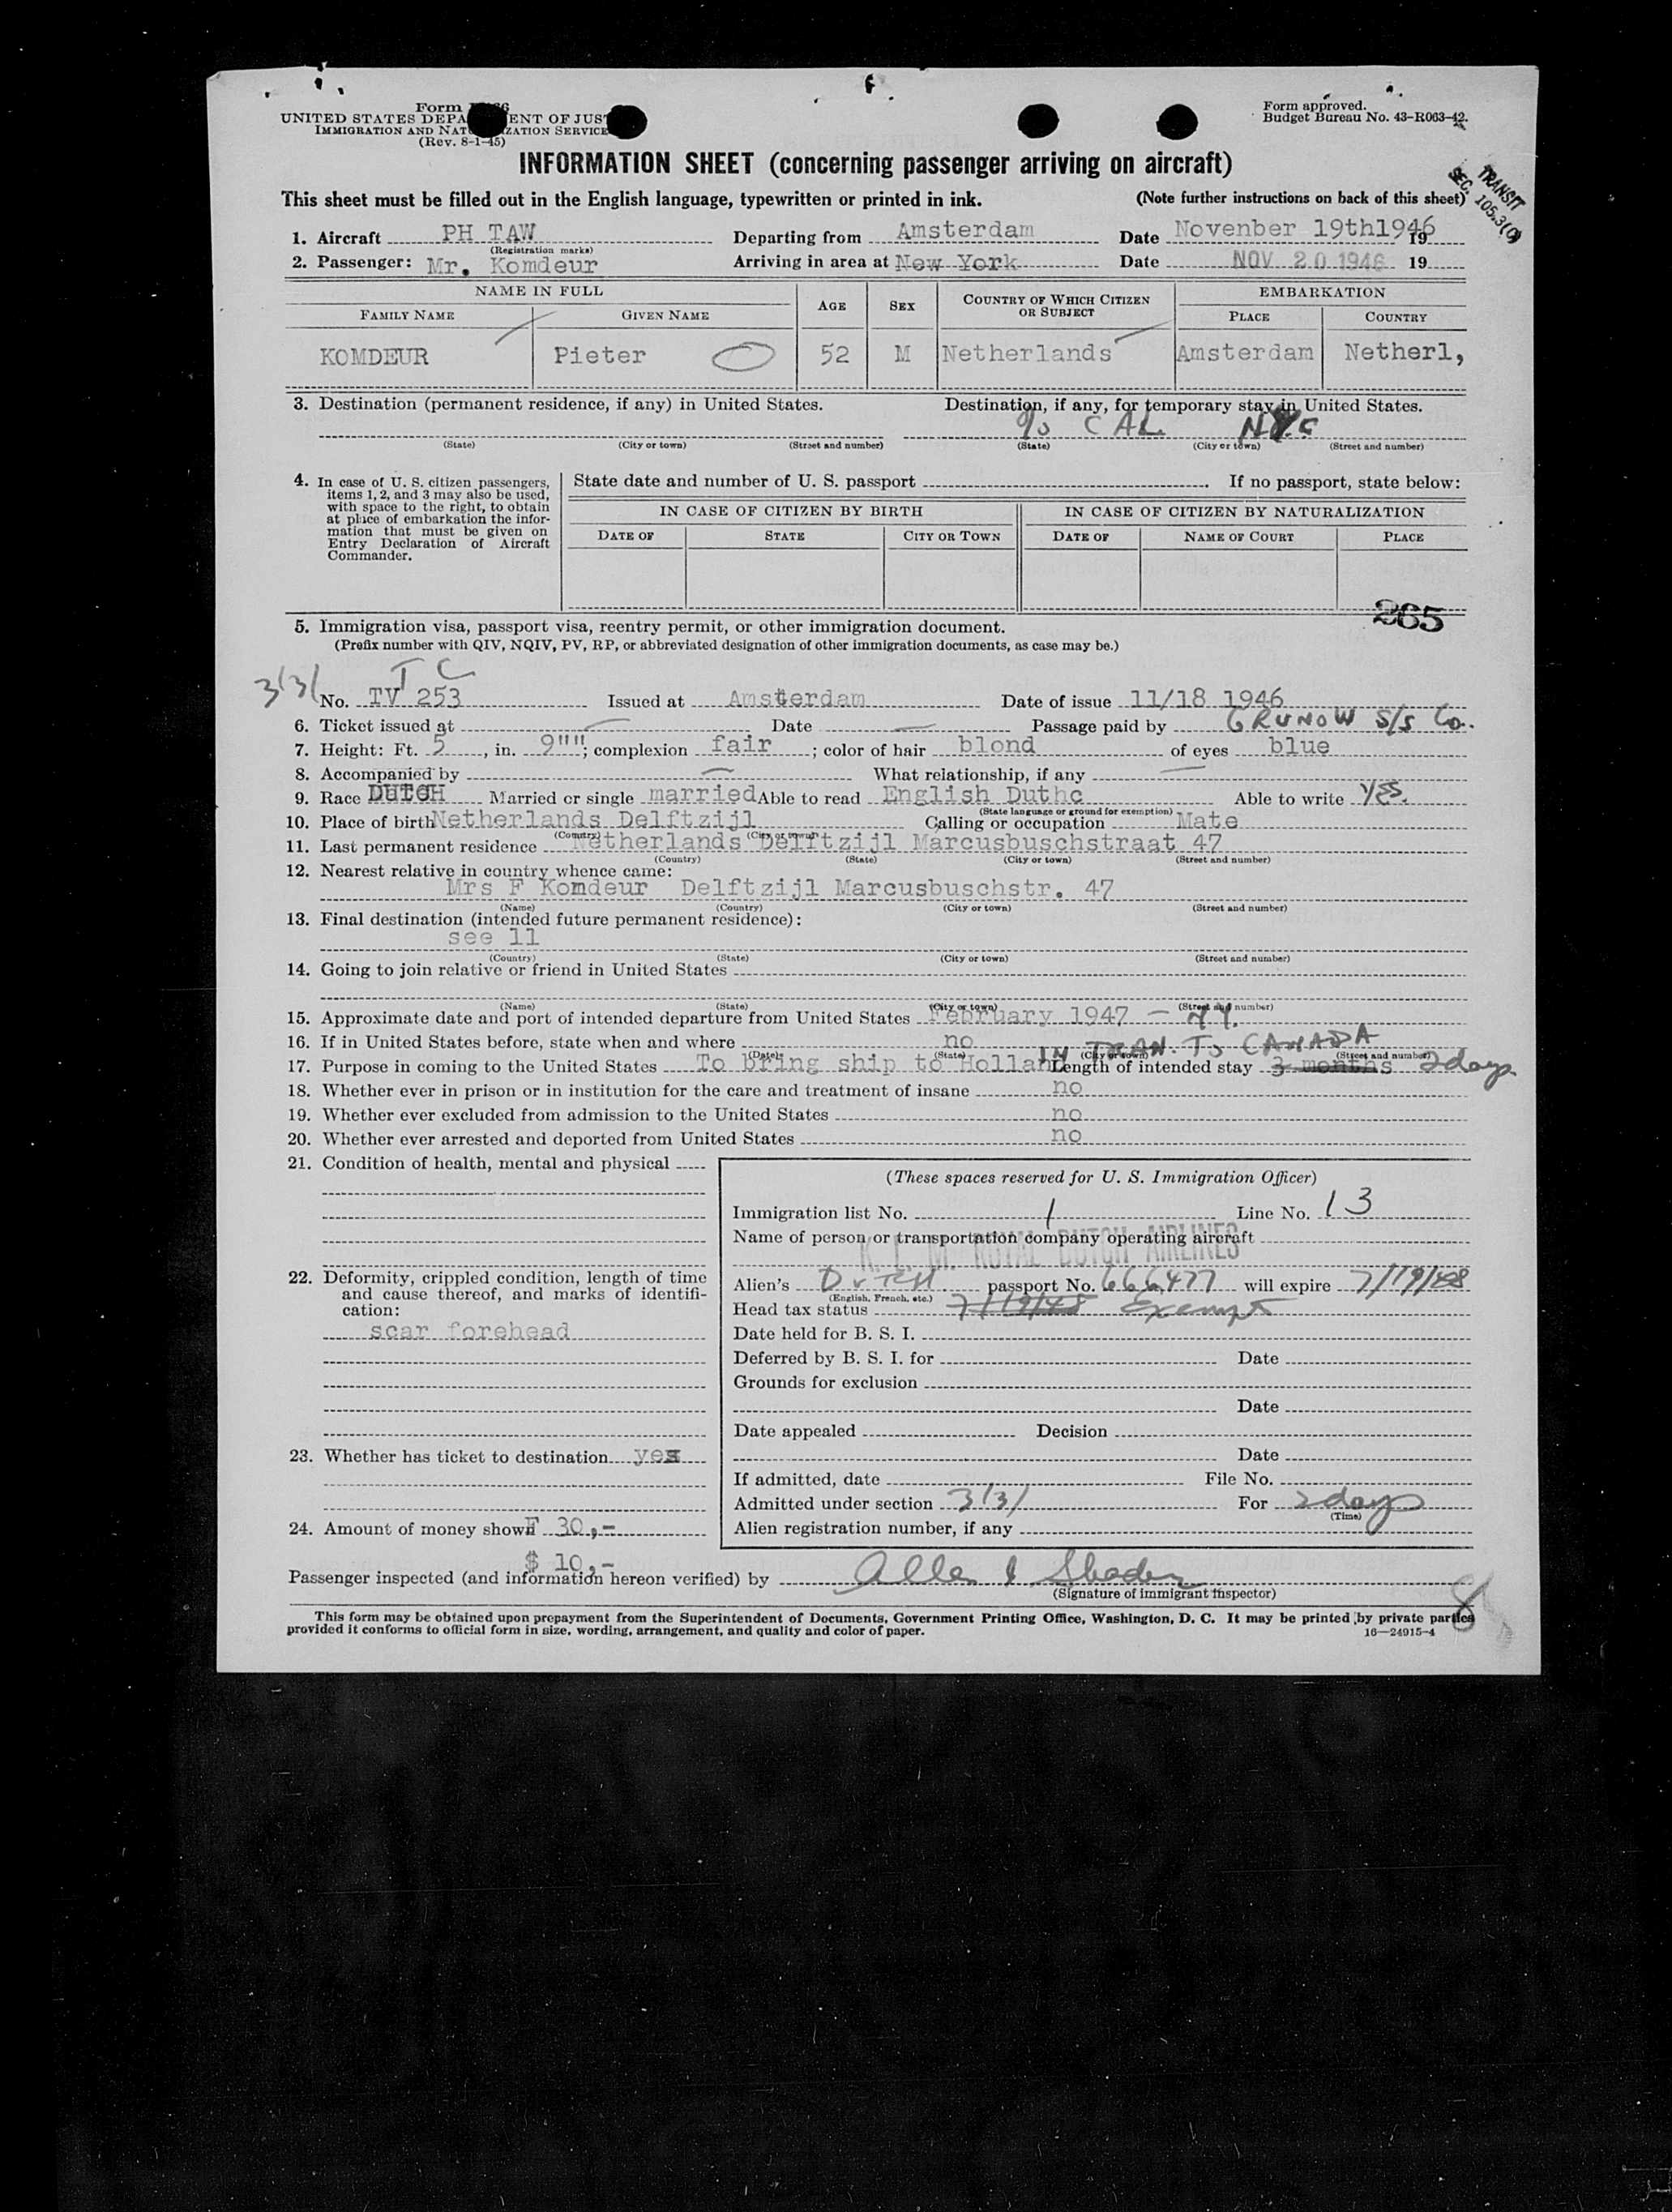 Form
UNITED STATES DEPA ENT OF JUS
IMMIGRATION AND NAT ZATION SERVICE
(Rev. 8-1-45)
Form approved.
Budget Bureau No. 43-R063-42.
INFORMATION SHEET (concerning passenger arriving on aircraft)
TRANSIT
SEC. 105.3(C)
This sheet must be filled out in the English language, typewritten or printed in ink. (Note further instructions on back of this sheet)
1. Aircraft PH TAW Departing from Amsterdam Date Novenber 19th1946 19
(Registration marks)
2. Passenger: Mr. Komdeur Arriving in area at New York Date NOV 20 1946 19
NAME IN FULL AGE SEX COUNTRY OF WHICH CITIZEN OR SUBJECT EMBARKATION
FAMILY NAME GIVEN NAME PLACE COUNTRY
KOMDEUR Pieter 52 M Netherlands Amsterdam Netherl,
3. Destination (permanent residence, if any) in United States. Destination, if any, for temporary stay in United States.
c/o CAL NYC
(State) (City or town) (Street and number) (State) (City or town) (Street and number)
4. In case of U. S. citizen passengers, items 1, 2, and 3 may also be used, with space to the right, to obtain at place of embarkation the information that must be given on Entry Declaration of Aircraft Commander.
State date and number of U. S. passport If no passport, state below:
IN CASE OF CITIZEN BY BIRTH IN CASE OF CITIZEN BY NATURALIZATION
DATE OF STATE CITY OR TOWN DATE OF NAME OF COURT PLACE
265
5. Immigration visa, passport visa, reentry permit, or other immigration document.
(Prefix number with QIV, NQIV, PV, RP, or abbreviated designation of other immigration documents, as case may be.)
T C
3(3) No. TV 253 Issued at Amsterdam Date of issue 11/18 1946
6. Ticket issued at Date Passage paid by GRUNOW S/S Co.
7. Height: Ft. 5, in. 9""; complexion fair; color of hair blond of eyes blue
8. Accompanied by What relationship, if any
9. Race DUTCH Married or single married Able to read English Duthc Able to write YES.
(State language or ground for exemption)
10. Place of birth Netherlands Delftzijl Calling or occupation Mate
(Country) (City or town)
11. Last permanent residence Netherlands Delftzijl Marcusbuschstraat 47
(Country) (State) (City or town) (Street and number)
12. Nearest relative in country whence came:
Mrs F Komdeur Delftzijl Marcusbuschstr. 47
(Name) (Country) (City or town) (Street and number)
13. Final destination (intended future permanent residence):
see 11
(Country) (State) (City or town) (Street and number)
14. Going to join relative or friend in United States
(Name) (State) (City or town) (Street and number)
15. Approximate date and port of intended departure from United States February 1947 - N.Y.
16. If in United States before, state when and where no
(Date) (State) (City or town) (Street and number)
IN TRAN. TO CANADA
17. Purpose in coming to the United States To bring ship to Holland Length of intended stay 3 months 2 days
18. Whether ever in prison or in institution for the care and treatment of insane no
19. Whether ever excluded from admission to the United States no
20. Whether ever arrested and deported from United States no
21. Condition of health, mental and physical
22. Deformity, crippled condition, length of time and cause thereof, and marks of identification:
scar forehead
23. Whether has ticket to destination yes
24. Amount of money shown F 30,-
$ 10,-
(These spaces reserved for U. S. Immigration Officer)
Immigration list No. 1 Line No. 13
Name of person or transportation company operating aircraft
K. L. M. ROYAL DUTCH AIRLINES
Alien's DUTCH passport No. 666477 will expire 7/19/48
(English, French, etc.)
Head tax status 7/19/48 Exempt
Date held for B. S. I.
Deferred by B. S. I. for Date
Grounds for exclusion
Date
Date appealed Decision
Date
If admitted, date File No.
Admitted under section 3(3) For 2 days
(Time)
Alien registration number, if any
Passenger inspected (and information hereon verified) by
(Signature of immigrant inspector)
This form may be obtained upon prepayment from the Superintendent of Documents, Government Printing Office, Washington, D. C. It may be printed by private parties
provided it conforms to official form in size, wording, arrangement, and quality and color of paper. 16—24915-4
8